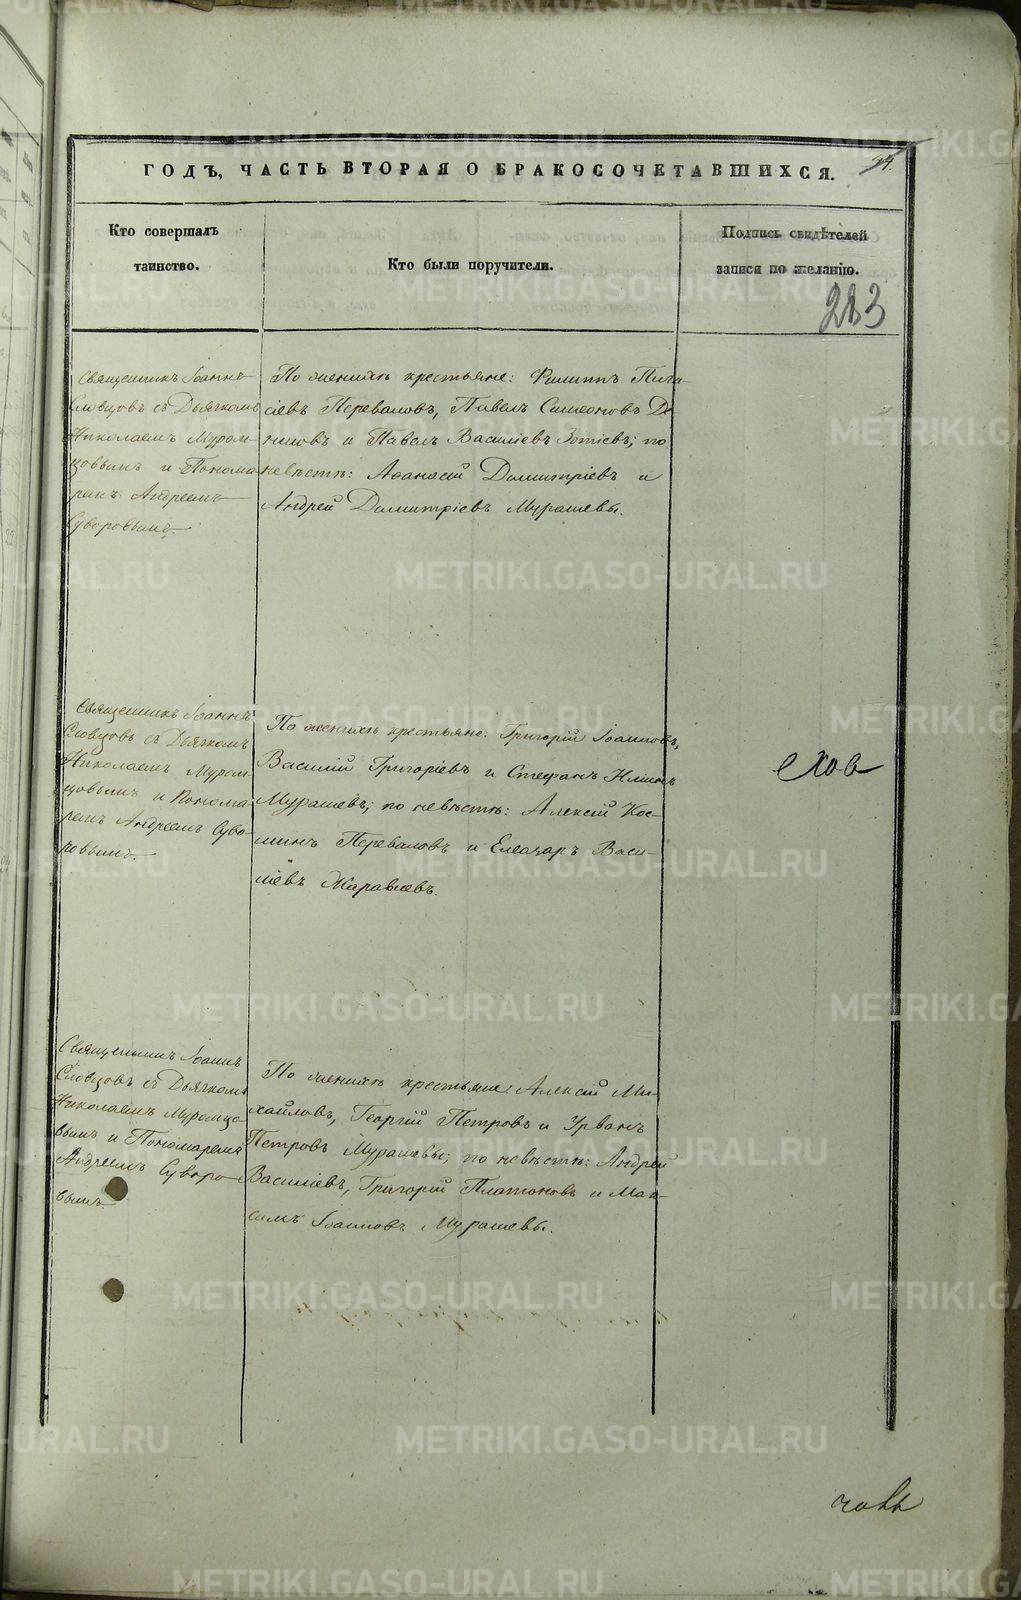 ГОДЪ, ЧАСТЬ ВТОРАЯ О БРАКОСОЧЕТАВШИХСЯ.
Кто совершалъ
таинство.
Кто были поручители.
Подпись свидѣтелей
записи по желанію.
283
Священникъ Іоаннъ
Словцовъ съ Дьячкомъ
Николаемъ Муром-
цовымъ и Понома-
ремъ Андреемъ
Суворовымъ
По женихѣ крестьяне: Филиппъ
Переваловъ, Павелъ Симеоновъ
и Павелъ Василіевъ Зотіевъ; по
невѣстѣ: Аѳанасій Димитріевъ и
Андрей Димитріевъ Мурашевы.
Священникъ Іоаннъ
Словцовъ съ Дьячкомъ
Николаемъ Муром-
цовымъ и Понома-
ремъ Андреемъ Суво-
ровымъ
По женихѣ крестьяне: Григорій Іоанновъ,
Василій Григоріевъ и Стефанъ Ильинъ
Мурашевъ; по невѣстѣ: Алексій Кос-
минъ Переваловъ и Елеазаръ Васи-
ліевъ Жаравлевъ.
ехов
Священникъ Іоаннъ
Словцовъ съ Дьячкомъ
Николаемъ Муромцо-
вымъ и Пономаремъ
Андреемъ Суворо-
вымъ
По женихѣ крестьяне: Алексій Ми-
хайловъ, Георгій Петровъ и Урванъ
Петровъ Мурашевы; по невѣстѣ: Андрей
Василіевъ, Григорій Платоновъ и Мак-
симъ Іоанновъ Мурашевы.
METRIKI.GASO-URAL.RU